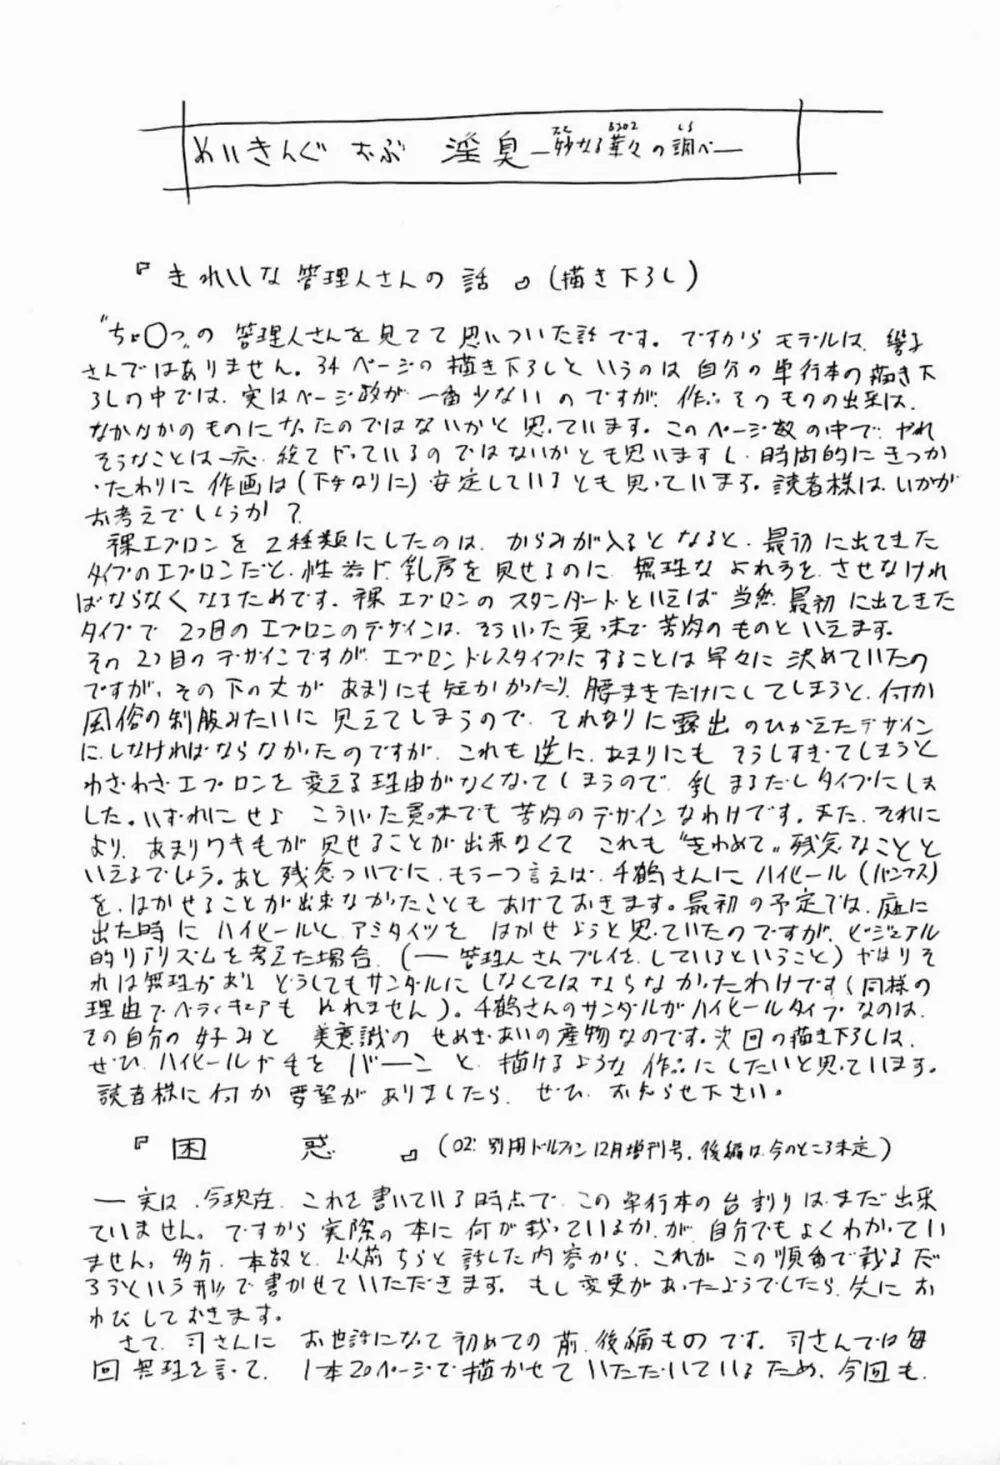 めいきんぐ おぶ 淫臭 ―妙なる華々の調べ―
『きれいな管理人さんの話』(描き下ろし)
"ち○○つ"の管理人さんを見てて思いついた話です。ですからモデルは、響子
さんではありません。34ページの描き下ろしというのは自分の単行本の描き下
ろしの中では、実はページ数が一番少ないのですが、作品そのものの出来は、
なかなかのものになったのではないかと思っています。このページ数の中で、やれ
そうなことは一応、総てやっているのではないかとも思いますし、時間的にきつか
ったわりに作画は(下手なりに)安定しているとも思っています。読者様は、いかが
お考えでしょうか?
裸エプロンを2種類にしたのは、からみが入るとなると、最初に出てきた
タイプのエプロンだと、性器や、乳房を見せるのに、無理なよれ方を、させなけれ
ばならなくなるためです。裸エプロンのスタンダードといえば当然、最初に出てきた
タイプで2つ目のエプロンのデザインは、そういった意味で苦肉のものといえます。
その2つ目のデザインですが、エプロンドレスタイプにすることは早々に決めていたの
ですが、その下の丈があまりにも短かかったり、腰まきだけにしてしまうと、何か
風俗の制服みたいに見えてしまうので、それなりに露出のひかえたデザイン
にしなければならなかったのですが、これも逆に、あまりにもそうしすぎてしまうと
わざわざエプロンを変える理由がなくなってしまうので、乳まるだしタイプにしま
した。いずれにせよ こういった意味でも苦肉のデザインなわけです。また、それに
より、あまりワキ毛が見せることが出来なくて これも"きわめて"残念なことと
いえるでしょう。あと残念ついでに、もう一つ言えば、千鶴さんにハイヒール(パンプス)
を、はかせることが出来なかったこともあげておきます。最初の予定では、庭に
出た時にハイヒールと、アミタイツをはかせようと思っていたのですが、ビジュアル
的リアリズムを考えた場合、(―管理人さんプレイを、しているということ)やはりそ
れは無理があり どうしてもサンダルにしなくてはならなかったわけです(同様の
理由でペディキュアもぬれません)。千鶴さんのサンダルがハイヒールタイプなのは、
その自分の好みと 美意識のせめぎあいの産物なのです。次回の描き下ろしは、
ぜひ、ハイヒールや毛をバーンと、描けるような作品にしたいと思っています。
読者様に何か要望がありましたら、ぜひ、お知らせ下さい。
『困 惑』(02' 別冊ドルフィン12月増刊号、後編は今のところ未定)
―実は、今現在、これを書いている時点で、この単行本の台割りは、まだ出来
ていません。ですから実際の本に何が載っているか、が、自分でもよくわかってい
ません。多分、本数と、以前ちらと話した内容から、これが、この順番で載るだ
ろうという形で書かせていただきます。もし変更があったようでしたら、先にお
わびしておきます。
さて、司さんに お世話になって初めての前、後編ものです。司さんでは毎
回無理を言って、1本20ページで描かせていただいているため、今回も、